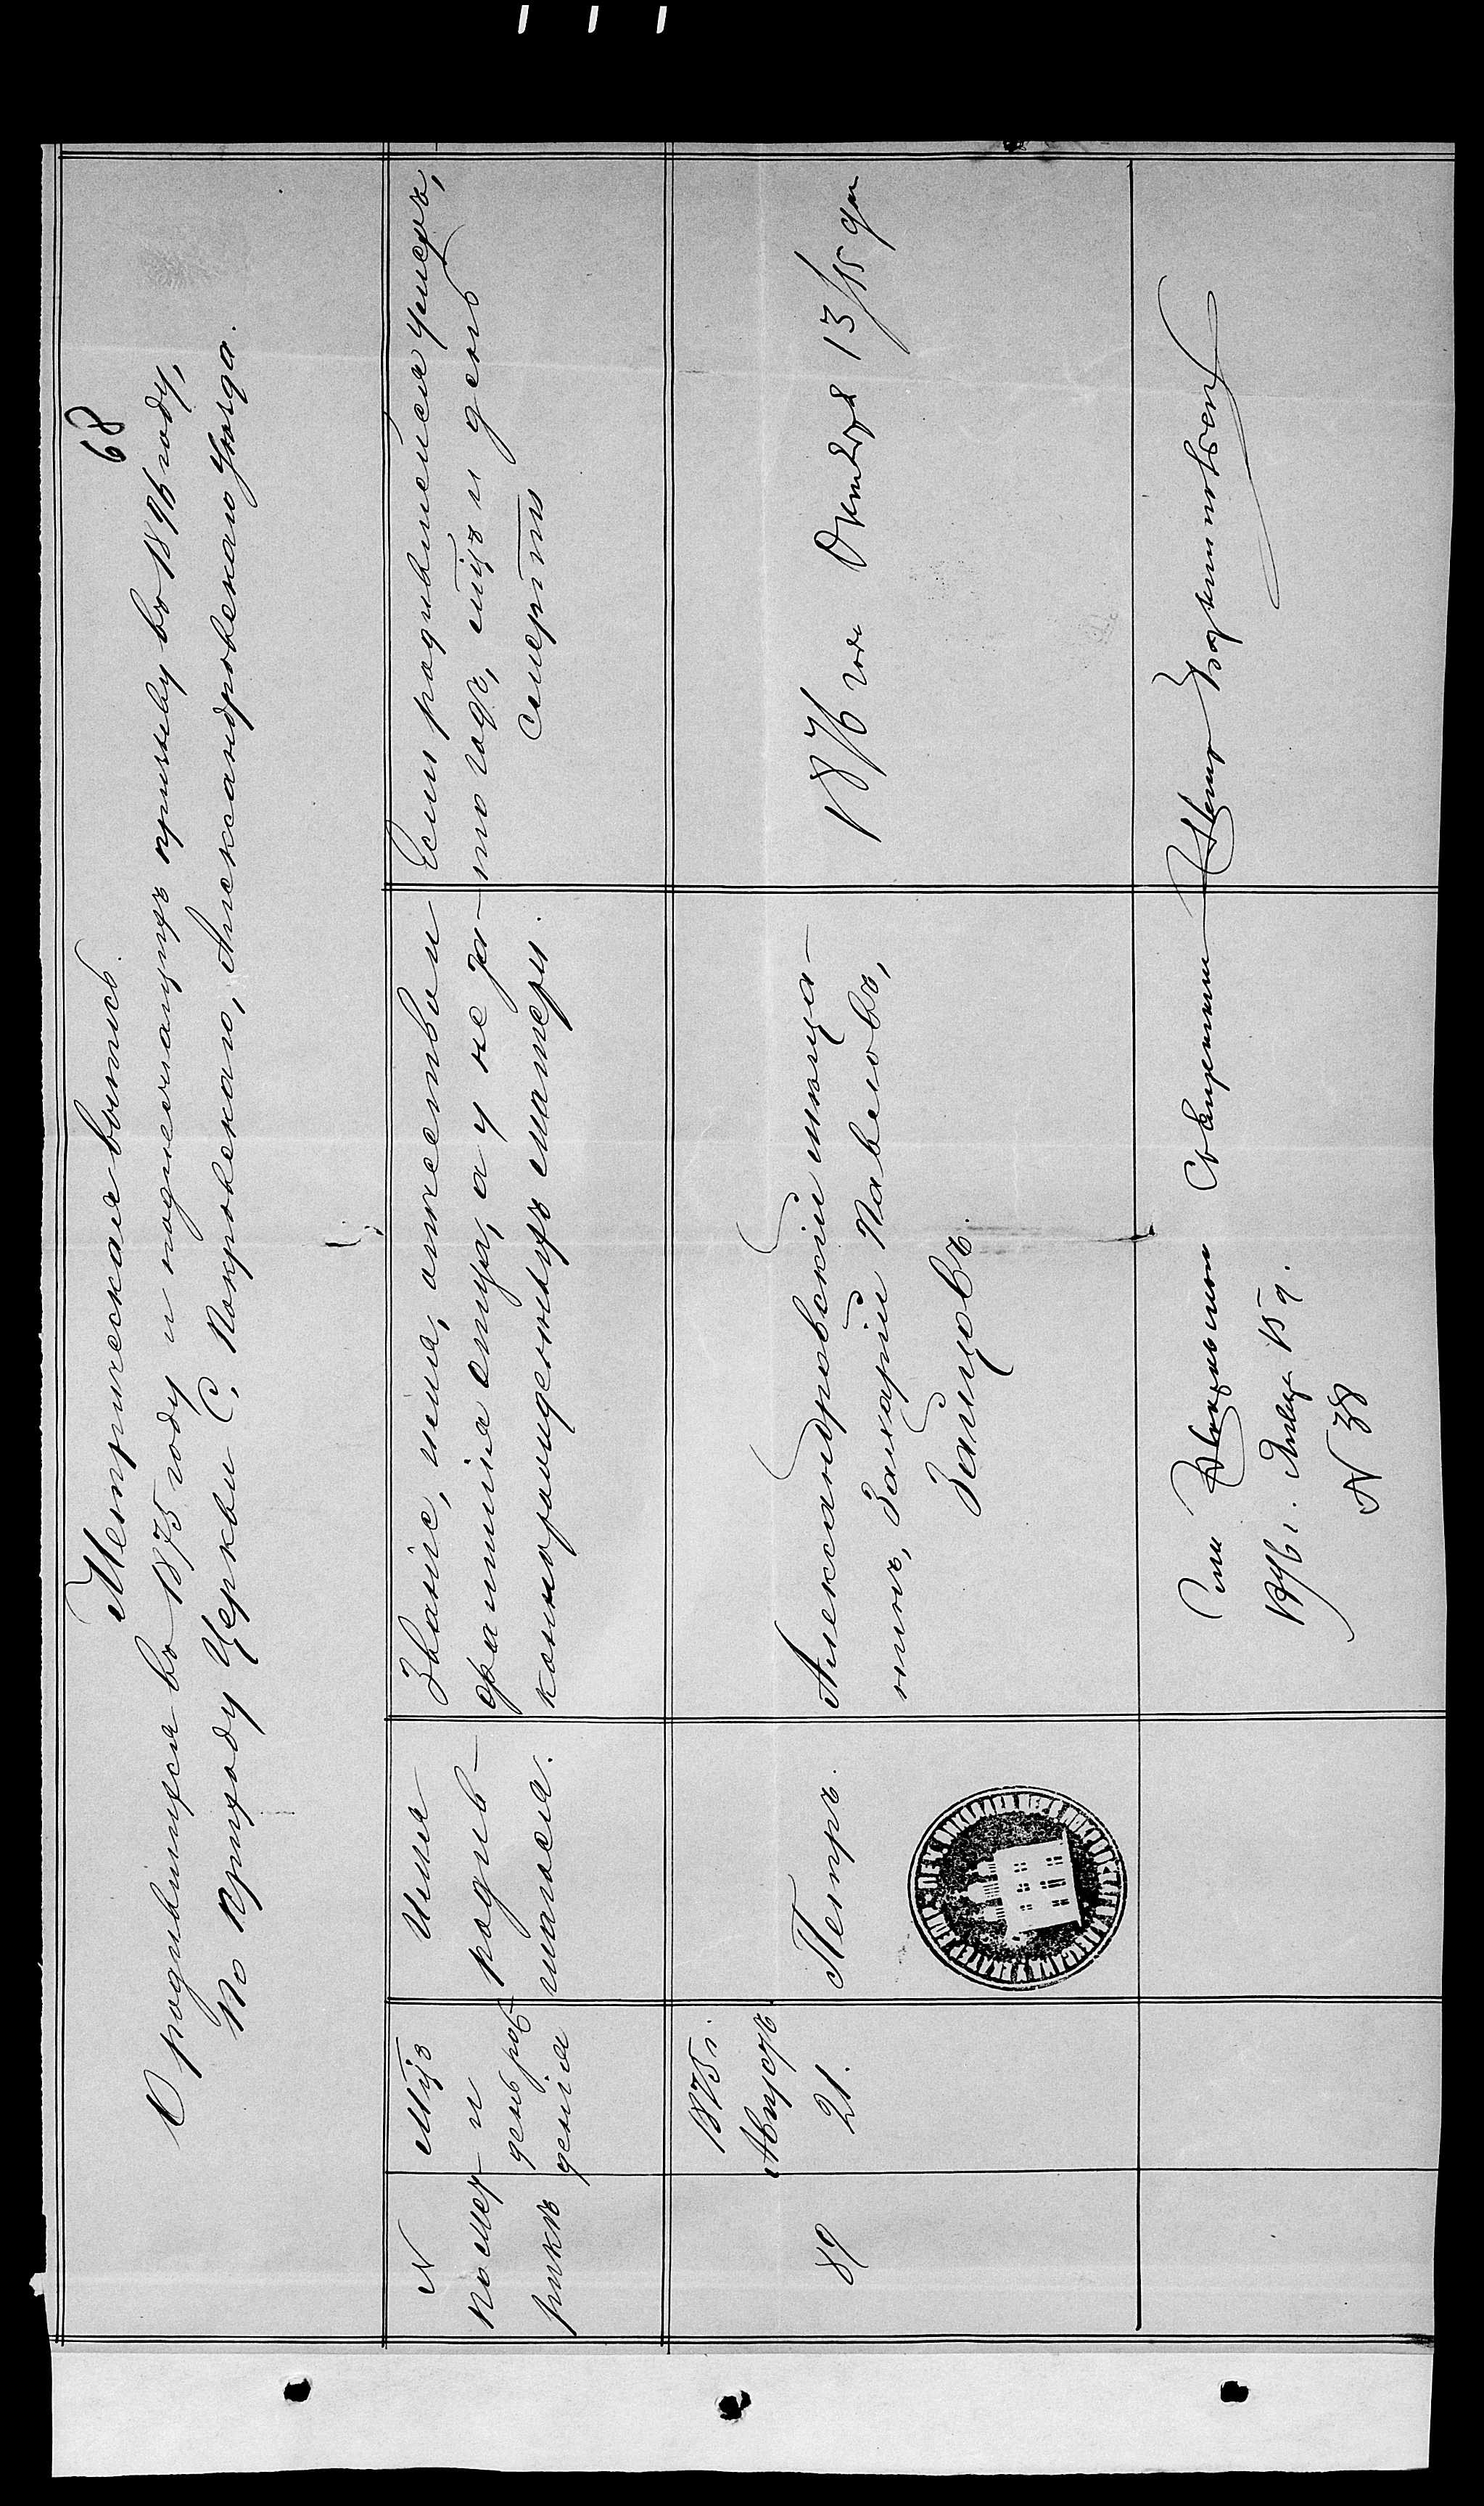 68
Метрическая выпись.
О родившихся въ 1875 году и подлежащихъ призыву въ 1896 году,
по приходу Церкви С. Покровскаго, Александровскаго уѣзда.
N
по мет-
рикѣ
Мцъ
и
день рож
денія
Имя
родив-
шагося.
Званіе, имя, отчество и
фамилія отца, а у не за-
коннорожденныхъ матери.
Если родившійся умеръ,
то годъ, мцъ и день
смерти
89
1875 г.
Августъ
21.
Петръ.
Александровскій мѣща-
нинъ, Захарій Павловъ,
Зайцовъ.
1876 года Октября 13/15 дня
Священникъ
1896 г. Января 15 д.
N 38